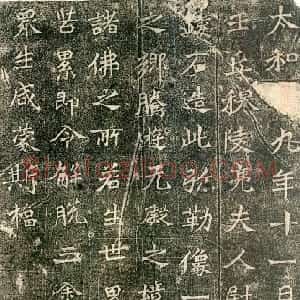 太和九年十一月
王丘穆陵亮夫人尉
鏤石造此弥勒像一
之鄉騰遊无礙之境
諸佛之所若生世界
苦累即令解脫三塗
眾生咸蒙斯福